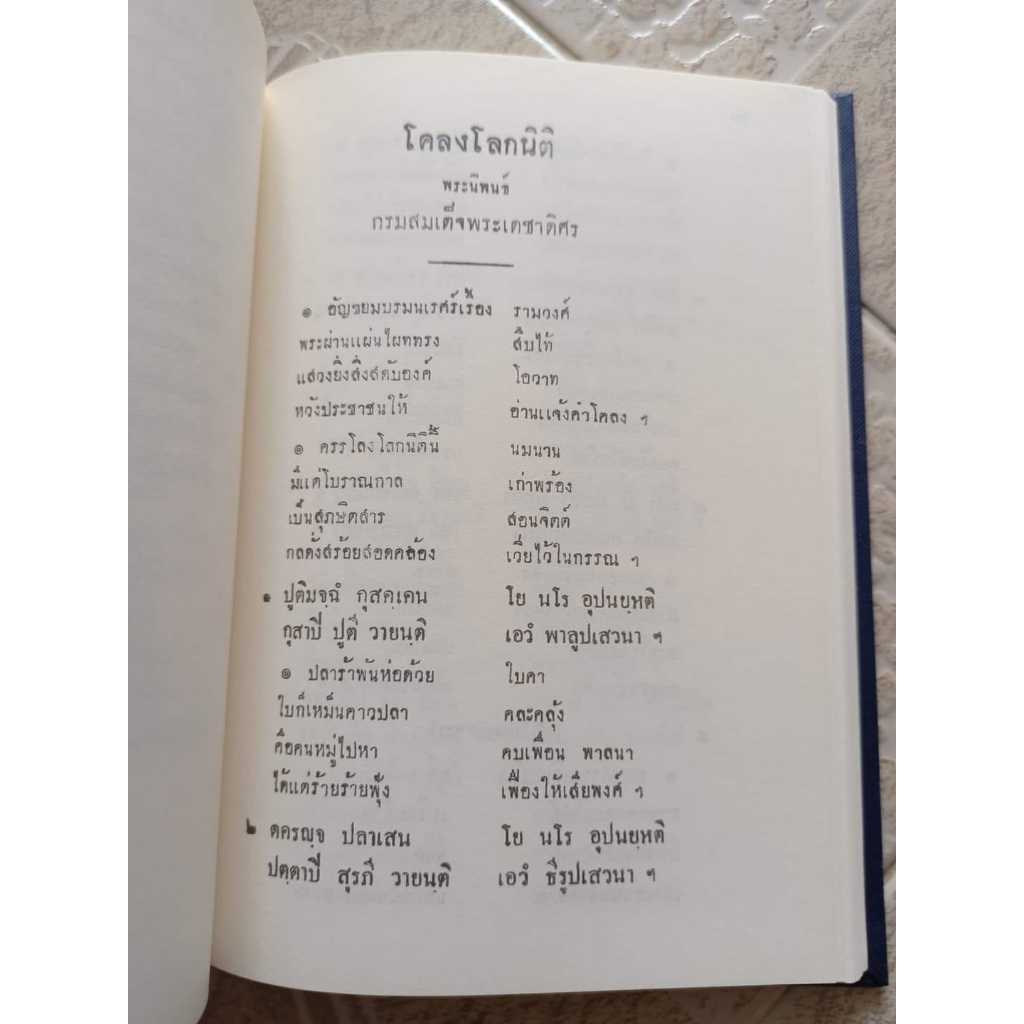 โคลงโลกนิติ
พระนิพนธ์
กรมสมเด็จพระเดชาดิศร
๑ อัญขยมบรมนเรศร์เรื้อง รามวงศ์
พระผ่านแผ่นไผททรง สืบไท้
แสวงยิ่งสิ่งสดับองค์ โอวาท
หวังประชาชนให้ อ่านแจ้งคำโคลง ฯ
๑ ครรโลงโลกนิตินี้ นมนาน
มีแต่โบราณกาล เก่าพร้อง
เป็นสุภษิตสาร สอนจิตต์
กลดั่งสร้อยสอดคล้อง เวี่ยไว้ในกรรณ ฯ
๑ ปูติมจฺฉํ กุสคฺเคน โย นโร อุปนยฺหติ
กุสาปี ปูตี วายนฺติ เอวํ พาลูปเสวนา ฯ
๑ ปลาร้าพันห่อด้วย ใบคา
ใบก็เหม็นคาวปลา คละคลุ้ง
คือคนหมู่ไปหา คบเพื่อน พาลนา
ได้แต่ร้ายร้ายฟุ้ง เฟื่องให้เสียพงศ์ ฯ
๒ ตครญฺจ ปลาเสน โย นโร อุปนยฺหติ
ปตฺตาปี สุรภี วายนฺติ เอวํ ธีรูปเสวนา ฯ